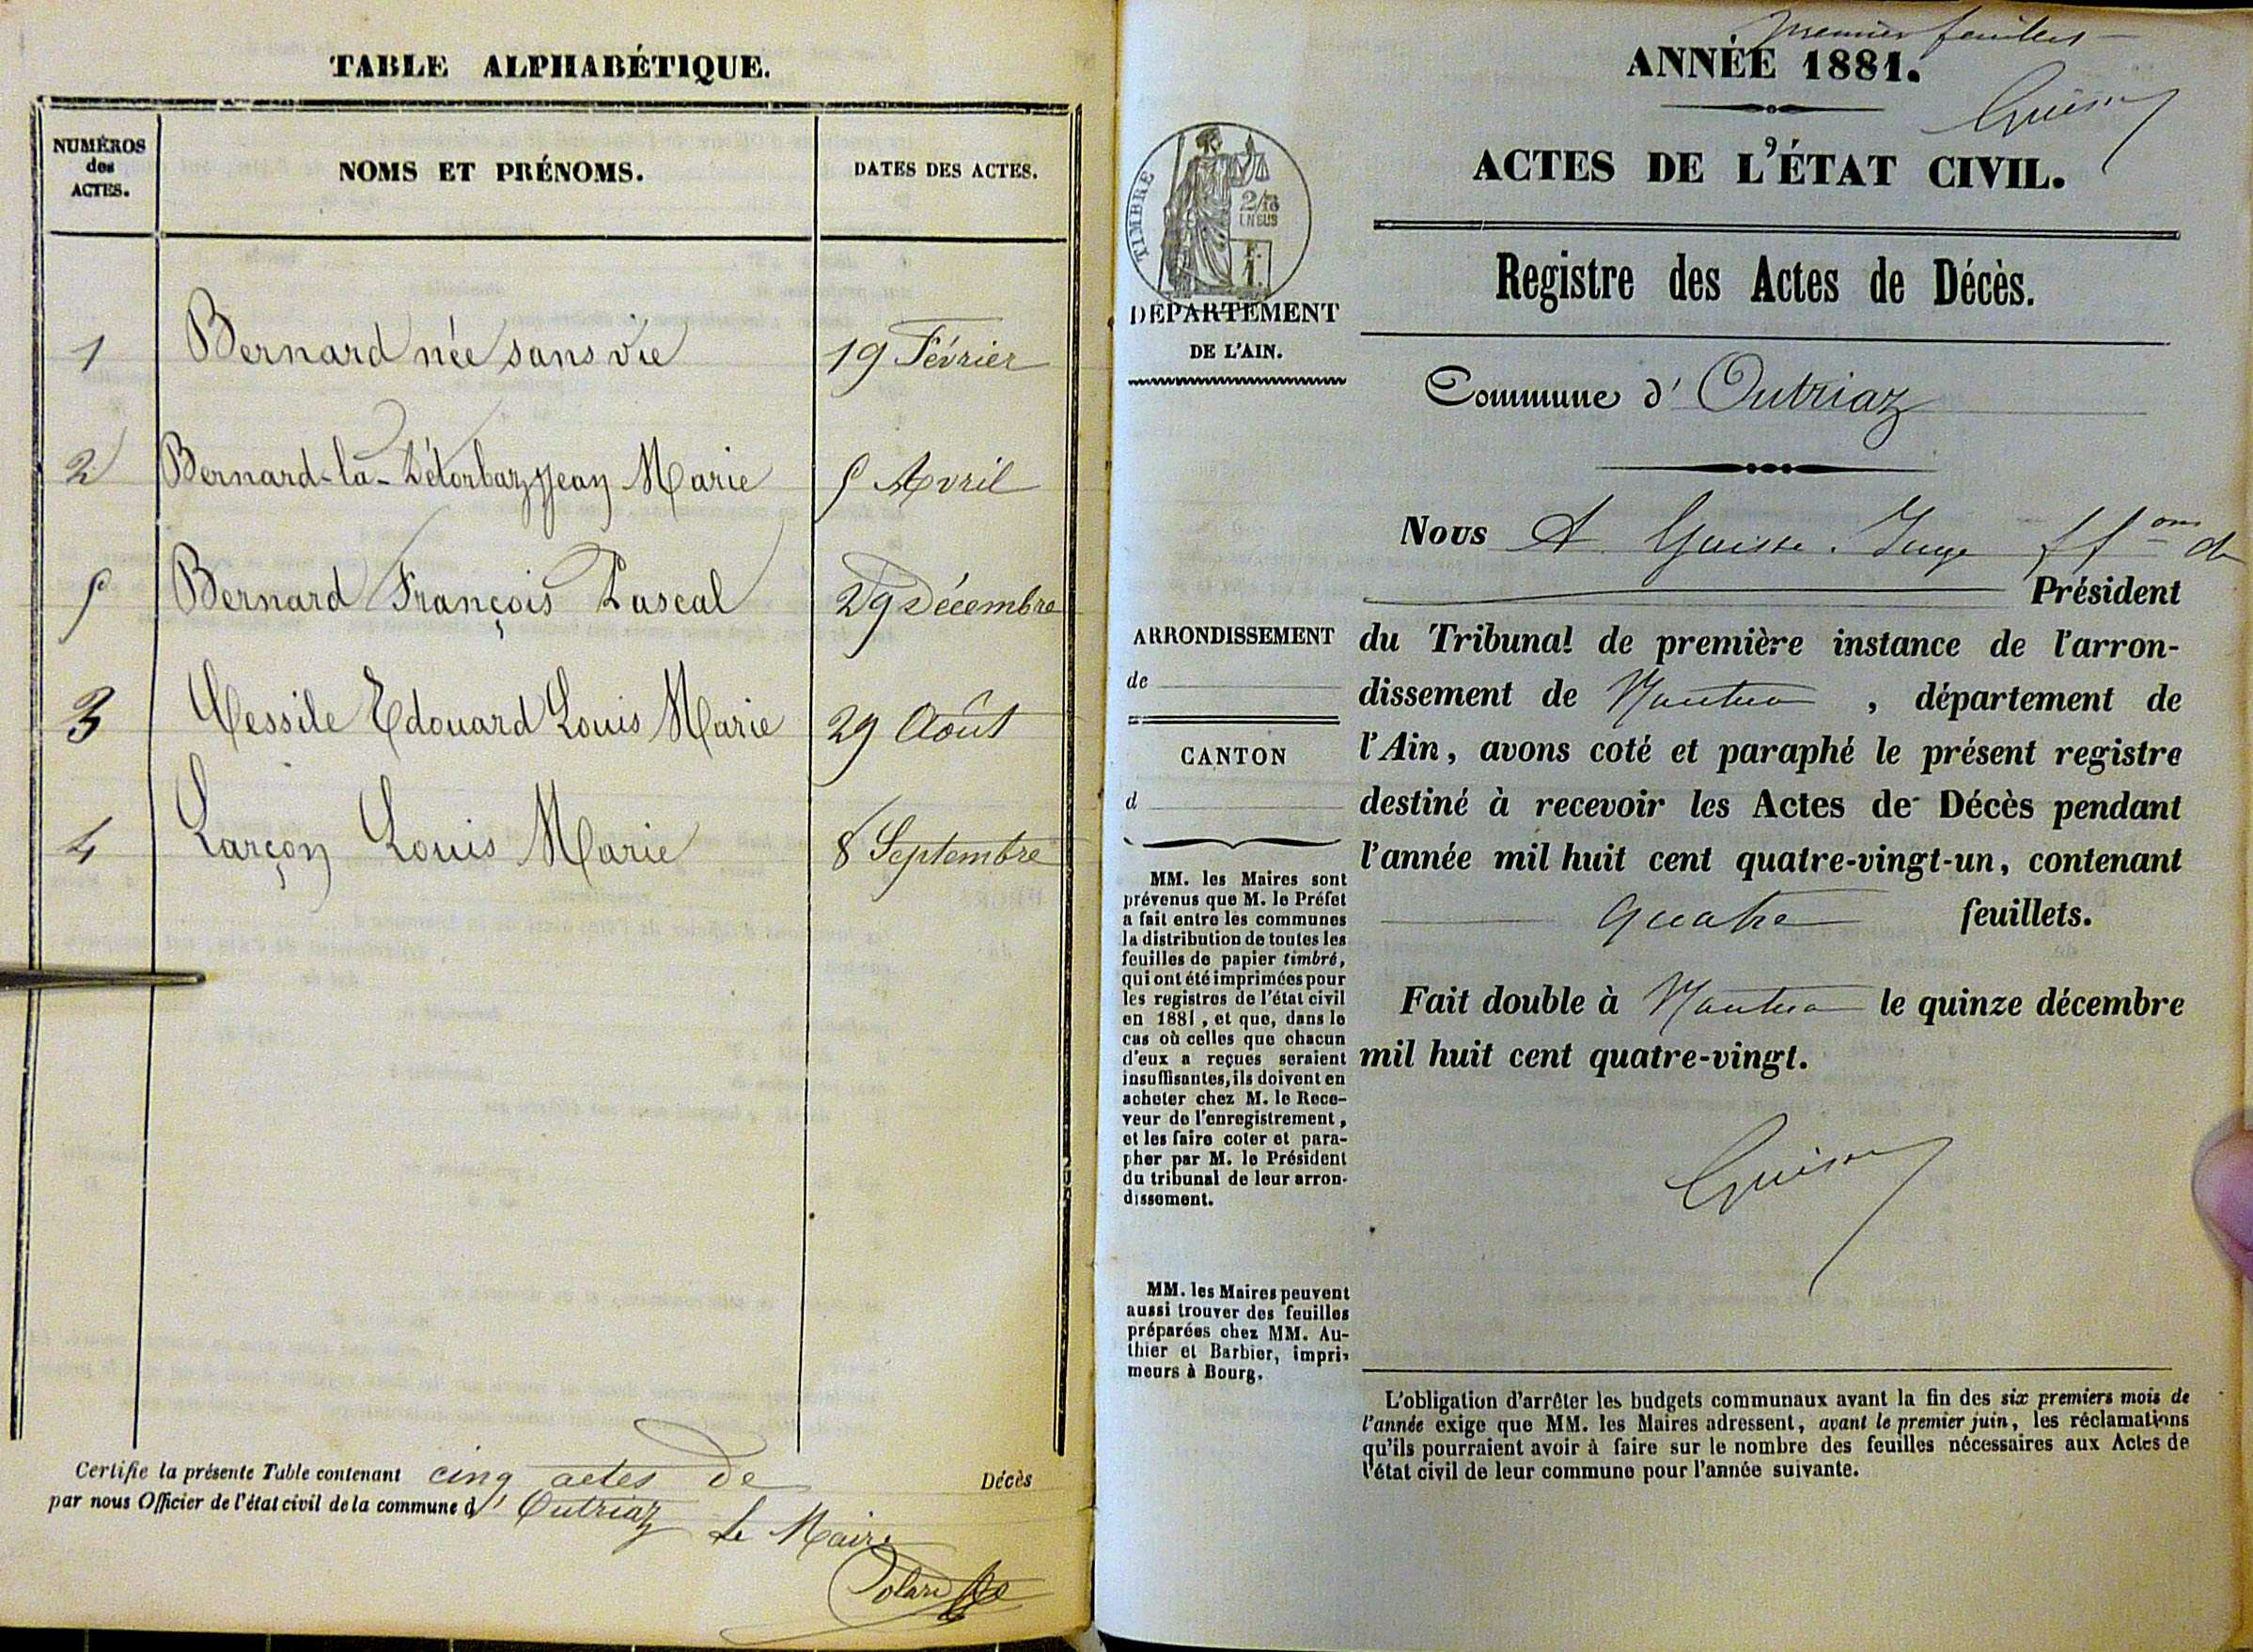 TABLE ALPHABÉTIQUE.
NUMÉROS
des
ACTES.
NOMS ET PRÉNOMS.
DATES DES ACTES.
1 Bernard née sans vie 19 Février
2 Bernard-la- Jean Marie 5 Avril
5 Bernard François Pascal 29 Décembre
3 Messile Edouard Louis Marie 29 Août
4 Larçon Louis Marie 8 Septembre
Certifie la présente Table contenant cinq actes de Décès
par nous Officier de l'état civil de la commune d' Outriaz Le Maire
premier feuillet
ANNÉE 1881.
ACTES DE L'ÉTAT CIVIL.
Registre des Actes de Décès.
TIMBRE
DÉPARTEMENT
DE L'AIN.
Commune d' Outriaz
Nous A. Juge ff ons de
Président
ARRONDISSEMENT
de
CANTON
d
du Tribunal de première instance de l'arron-
dissement de Nantua , département de
l'Ain, avons coté et paraphé le présent registre
destiné à recevoir les Actes de Décès pendant
l'année mil huit cent quatre-vingt-un, contenant
quatre feuillets.
Fait double à Nantua le quinze décembre
mil huit cent quatre-vingt.
MM. les Maires sont
prévenus que M. le Préfet
a fait entre les communes
la distribution de toutes les
feuilles de papier timbré,
qui ont été imprimées pour
les registres de l'état civil
en 1881, et que, dans le
cas où celles que chacun
d'eux a reçues seraient
insuffisantes, ils doivent en
acheter chez M. le Rece-
veur de l'enregistrement,
et les faire coter et para-
pher par M. le Président
du tribunal de leur arron-
dissement.
MM. les Maires peuvent
aussi trouver des feuilles
préparées chez MM. Au-
thier et Barbier, impri-
meurs à Bourg.
L'obligation d'arrêter les budgets communaux avant la fin des six premiers mois de
l'année exige que MM. les Maires adressent, avant le premier juin, les réclamations
qu'ils pourraient avoir à faire sur le nombre des feuilles nécessaires aux Actes de
l'état civil de leur commune pour l'année suivante.